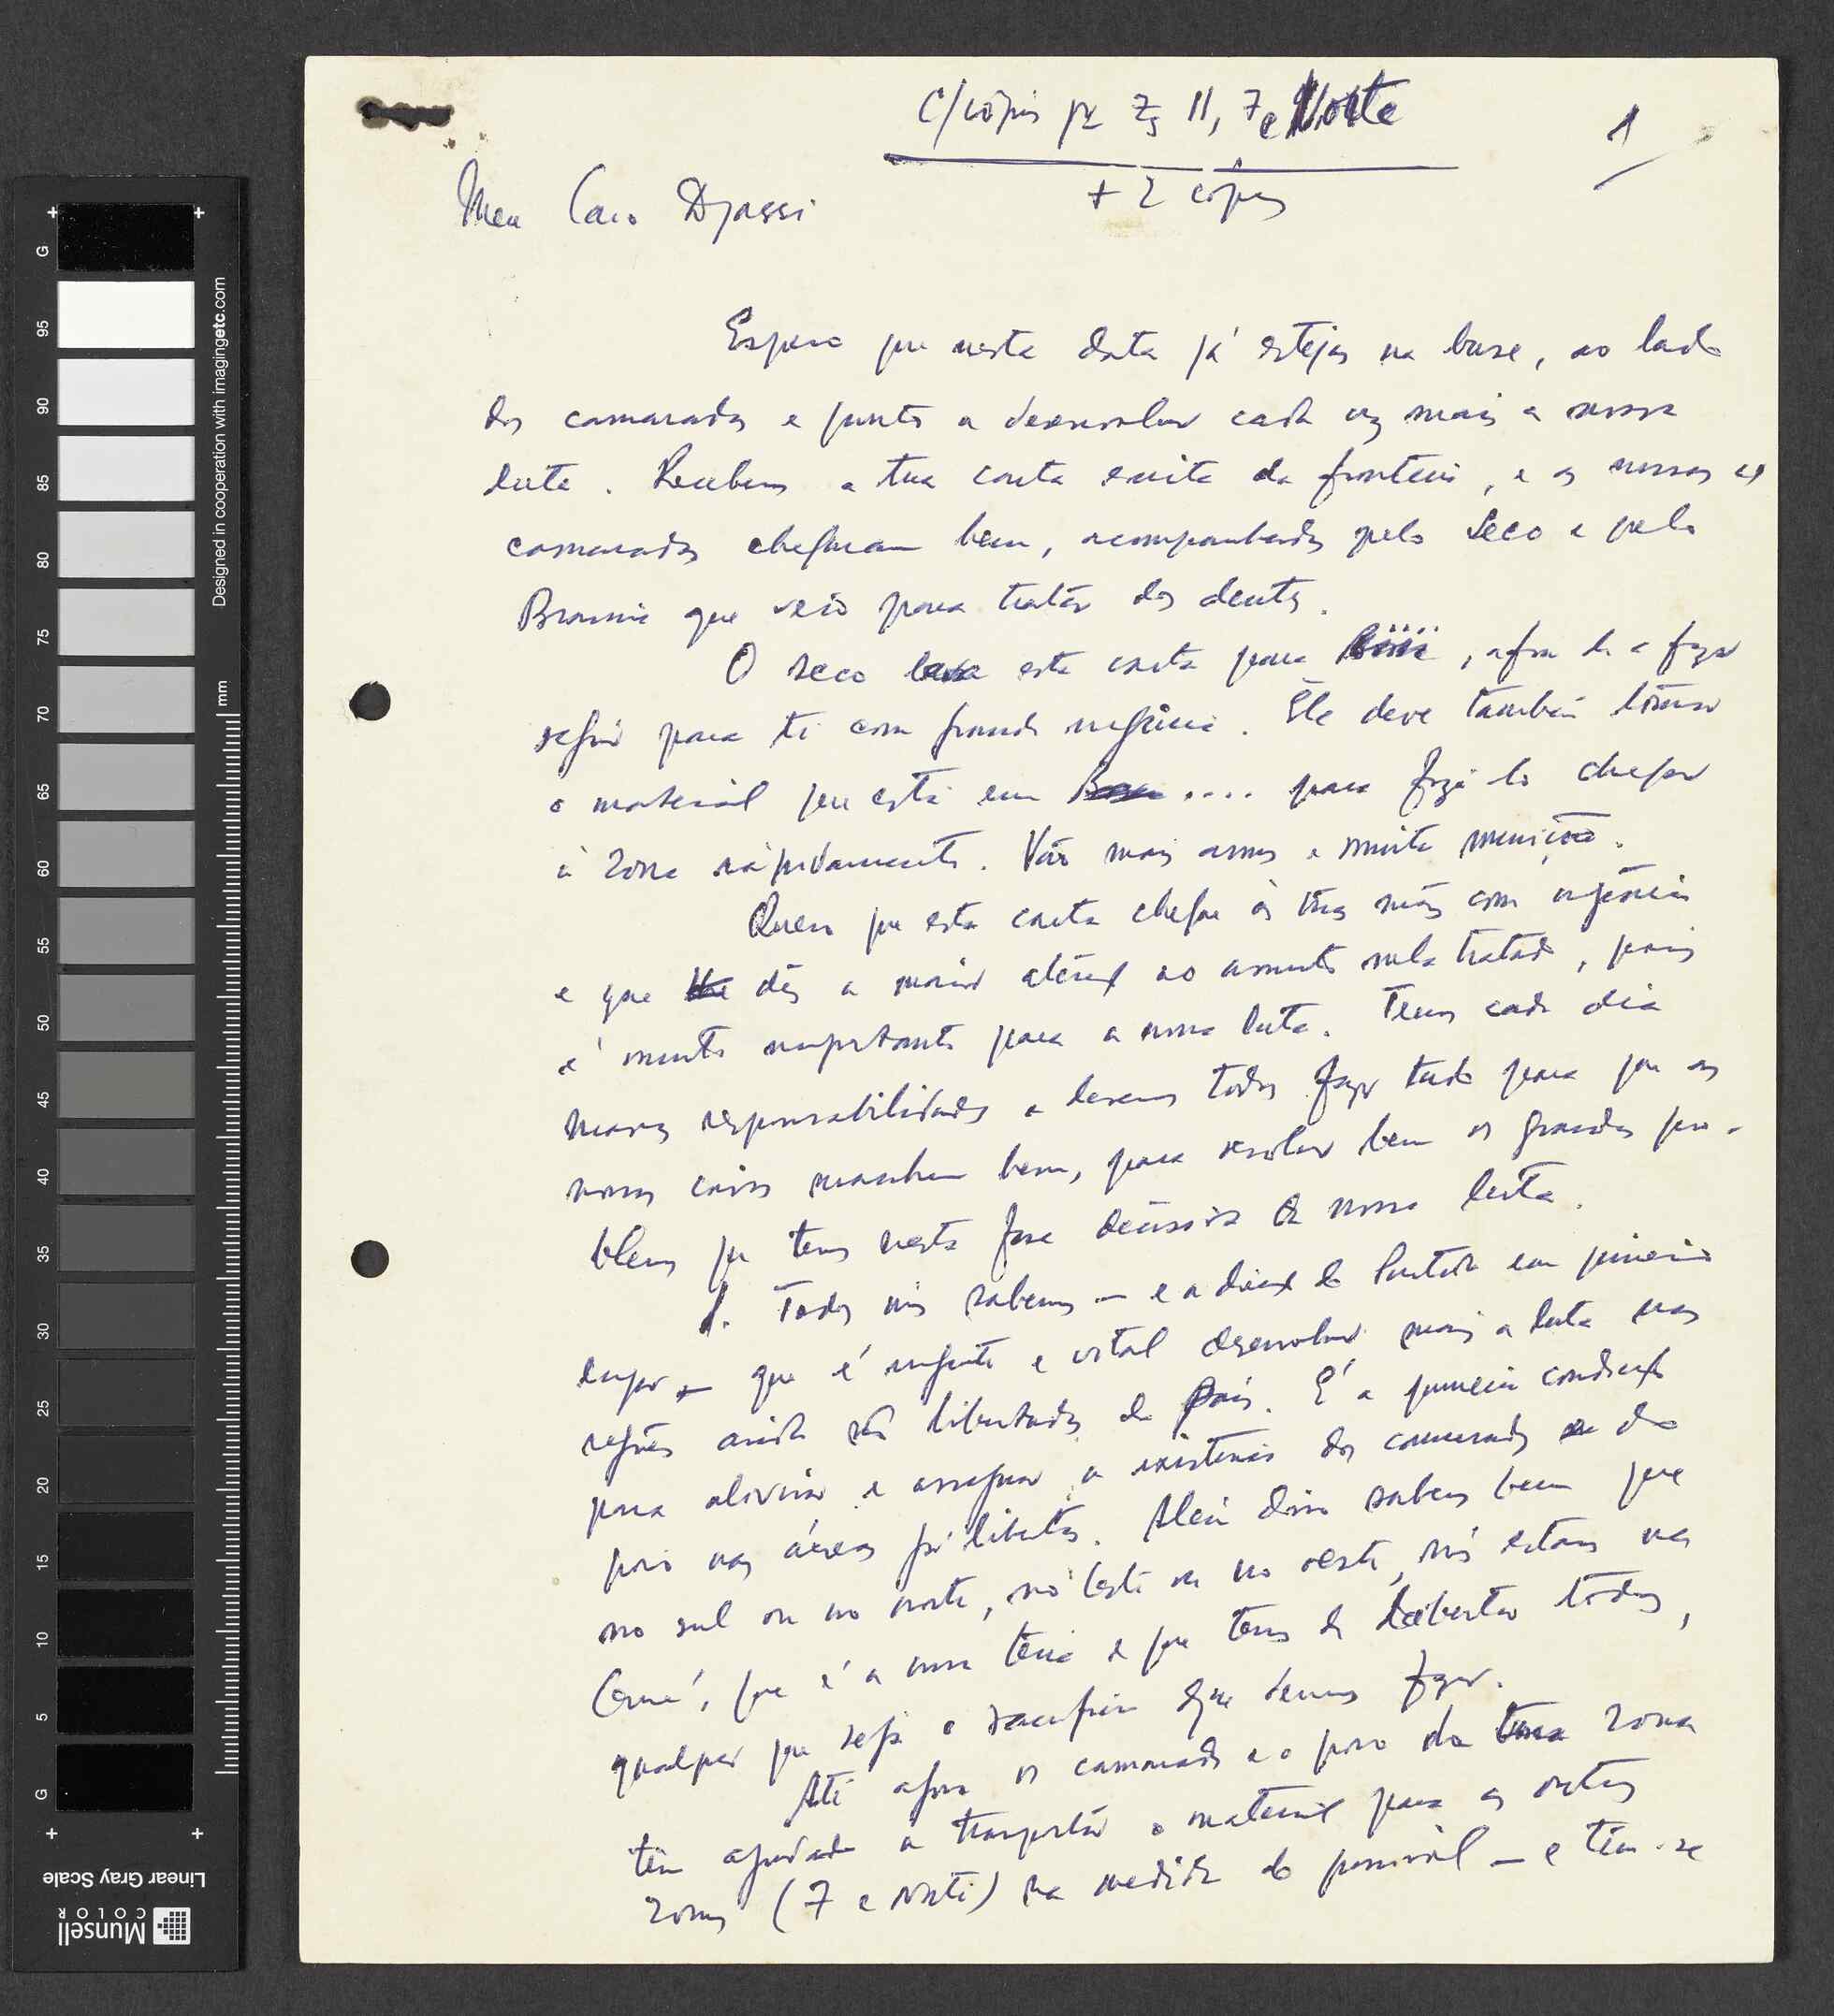 C/cópia pª Zs 11, 7 e Norte
1
+ 2 cópias
Meu Caro Djassi
Espero que nesta data já estejas na base, ao lado
dos camaradas e pronto a desenvolver cada vez mais a nossa
luta. Recebemos a tua carta escrita da fronteira, e os nossos
camaradas chegaram bem, acompanhados pelo Seco e pelo
que veio para tratar dos dentes.
O Seco leva esta carta para , afim de a fazer
seguir para ti com grande urgência. Êle deve também tomar
o material que está em .... para fazê-lo chegar
à zona ràpidamente. Vão mais armas e muita munição.
Quero que esta carta chegue às tuas mãos com urgência
e que dês a maior atenção ao assunto nela tratado, pois
é muito importante para a nossa luta. Temos cada dia
maiores responsabilidades e devemos todos fazer tudo para que as
nossas coisas marchem bem, para resolver bem os grandes pro-
blemas que temos nesta fase decisiva da nossa luta.
1. Todos nós sabemos — e a direcção do Partido em primeiro
lugar — que é urgente e vital desenvolver mais a luta nas
regiões ainda não libertadas do País. É a primeira condição
para aliviar e assegurar a existência dos camaradas e do
povo nas áreas já libertas. Além disso sabemos bem que
no sul ou no norte, no leste ou no oeste, nós estamos na
Guiné, que é a nossa terra e que temos de libertar toda,
qualquer que seja o sacrifício que devemos fazer.
Até agora os camaradas e o povo da tua zona
têm ajudado a transportar o material para as outras
zonas (7 e Norte) na medida do possível — e têm-se